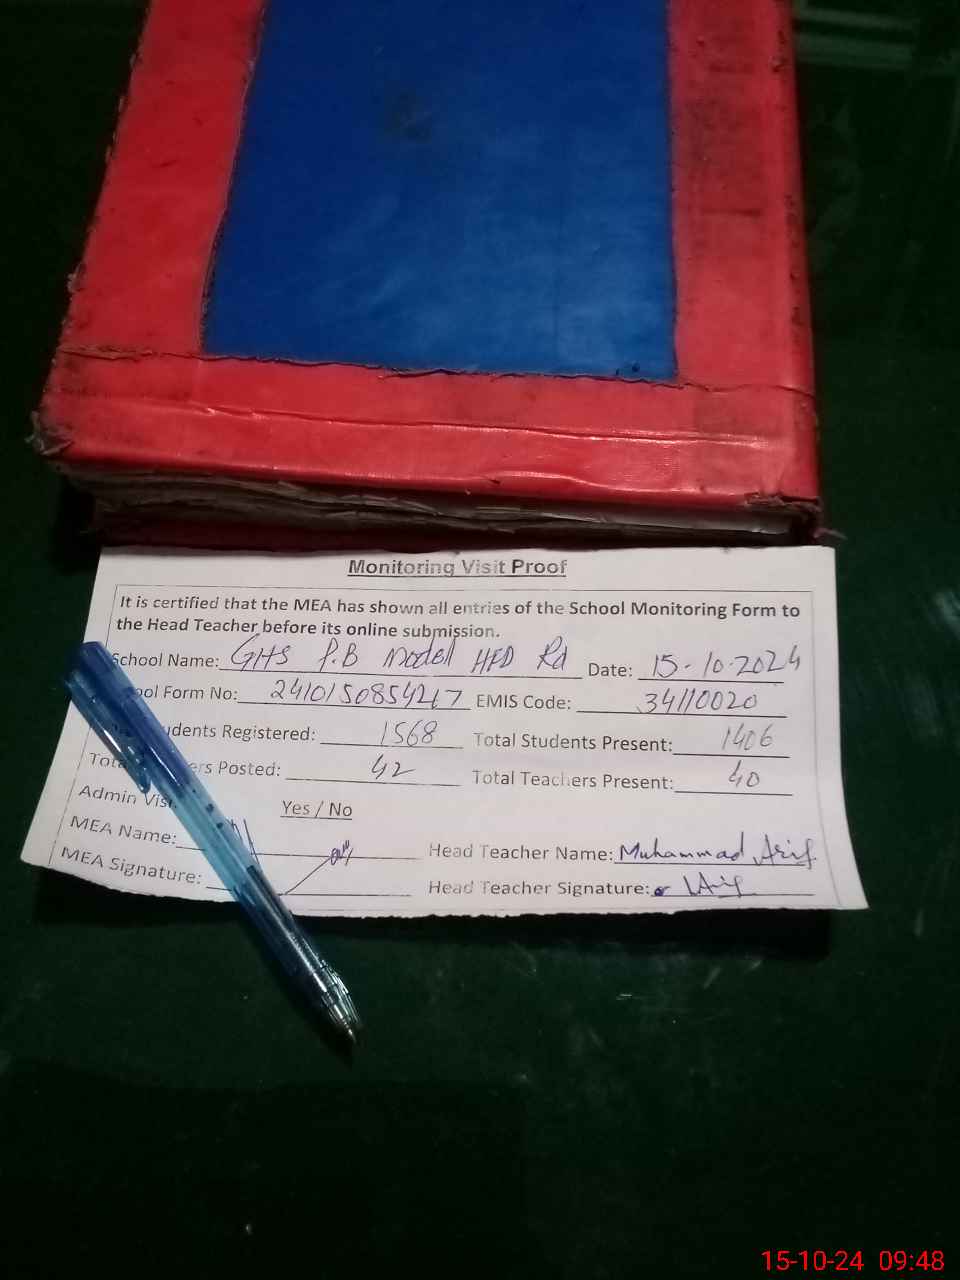 Monitoring Visit Proof
It is certified that the MEA has shown all entries of the School Monitoring Form to
the Head Teacher before its online submission.
School Name: GHS P.B Model HFD Rd Date: 15-10-2024
ool Form No: 2410150854217 EMIS Code: 34110020
udents Registered: 1568 Total Students Present: 1406
Tot ers Posted: 42 Total Teachers Present: 40
Admin Vis Yes / No
MEA Name: Head Teacher Name: Muhammad Arif
MEA Signature: Head Teacher Signature: Arif
15-10-24 09:48